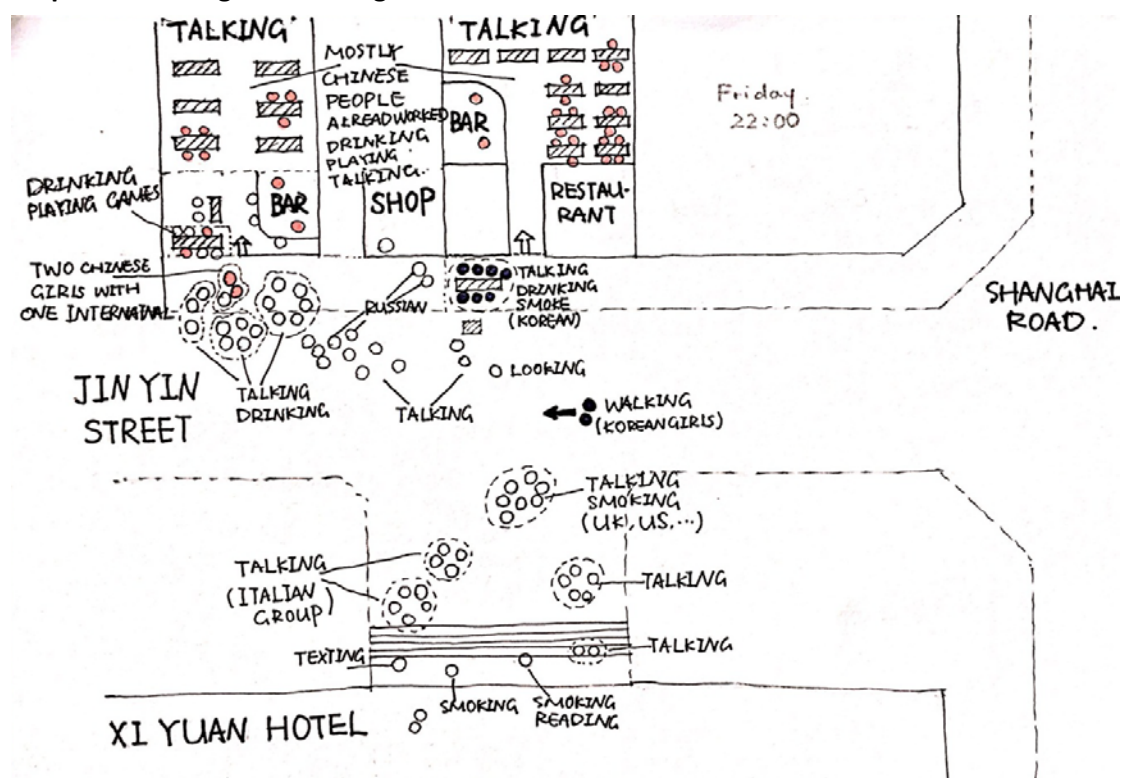 'TALKING'
'TALKING'
MOSTLY
CHINESE
PEOPLE
ALREADWORKED
DRINKING
PLAYING
TALKING.
BAR
Friday
22:00
DRINKING
PLAYING GAMES
BAR
SHOP
RESTAU-
RANT
TWO CHINESE
GIRLS WITH
ONE INTERNATNAL
RUSSIAN
TALKING
DRINKING
SMOKE
(KOREAN)
SHANGHAI
ROAD.
LOOKING
JIN YIN
STREET
TALKING
DRINKING
TALKING
WALKING
(KOREAN GIRLS)
TALKING
SMOKING
(UK, US, ...)
TALKING
(ITALIAN
GROUP)
TALKING
TALKING
TEXTING
SMOKING
SMOKING
READING
XI YUAN HOTEL